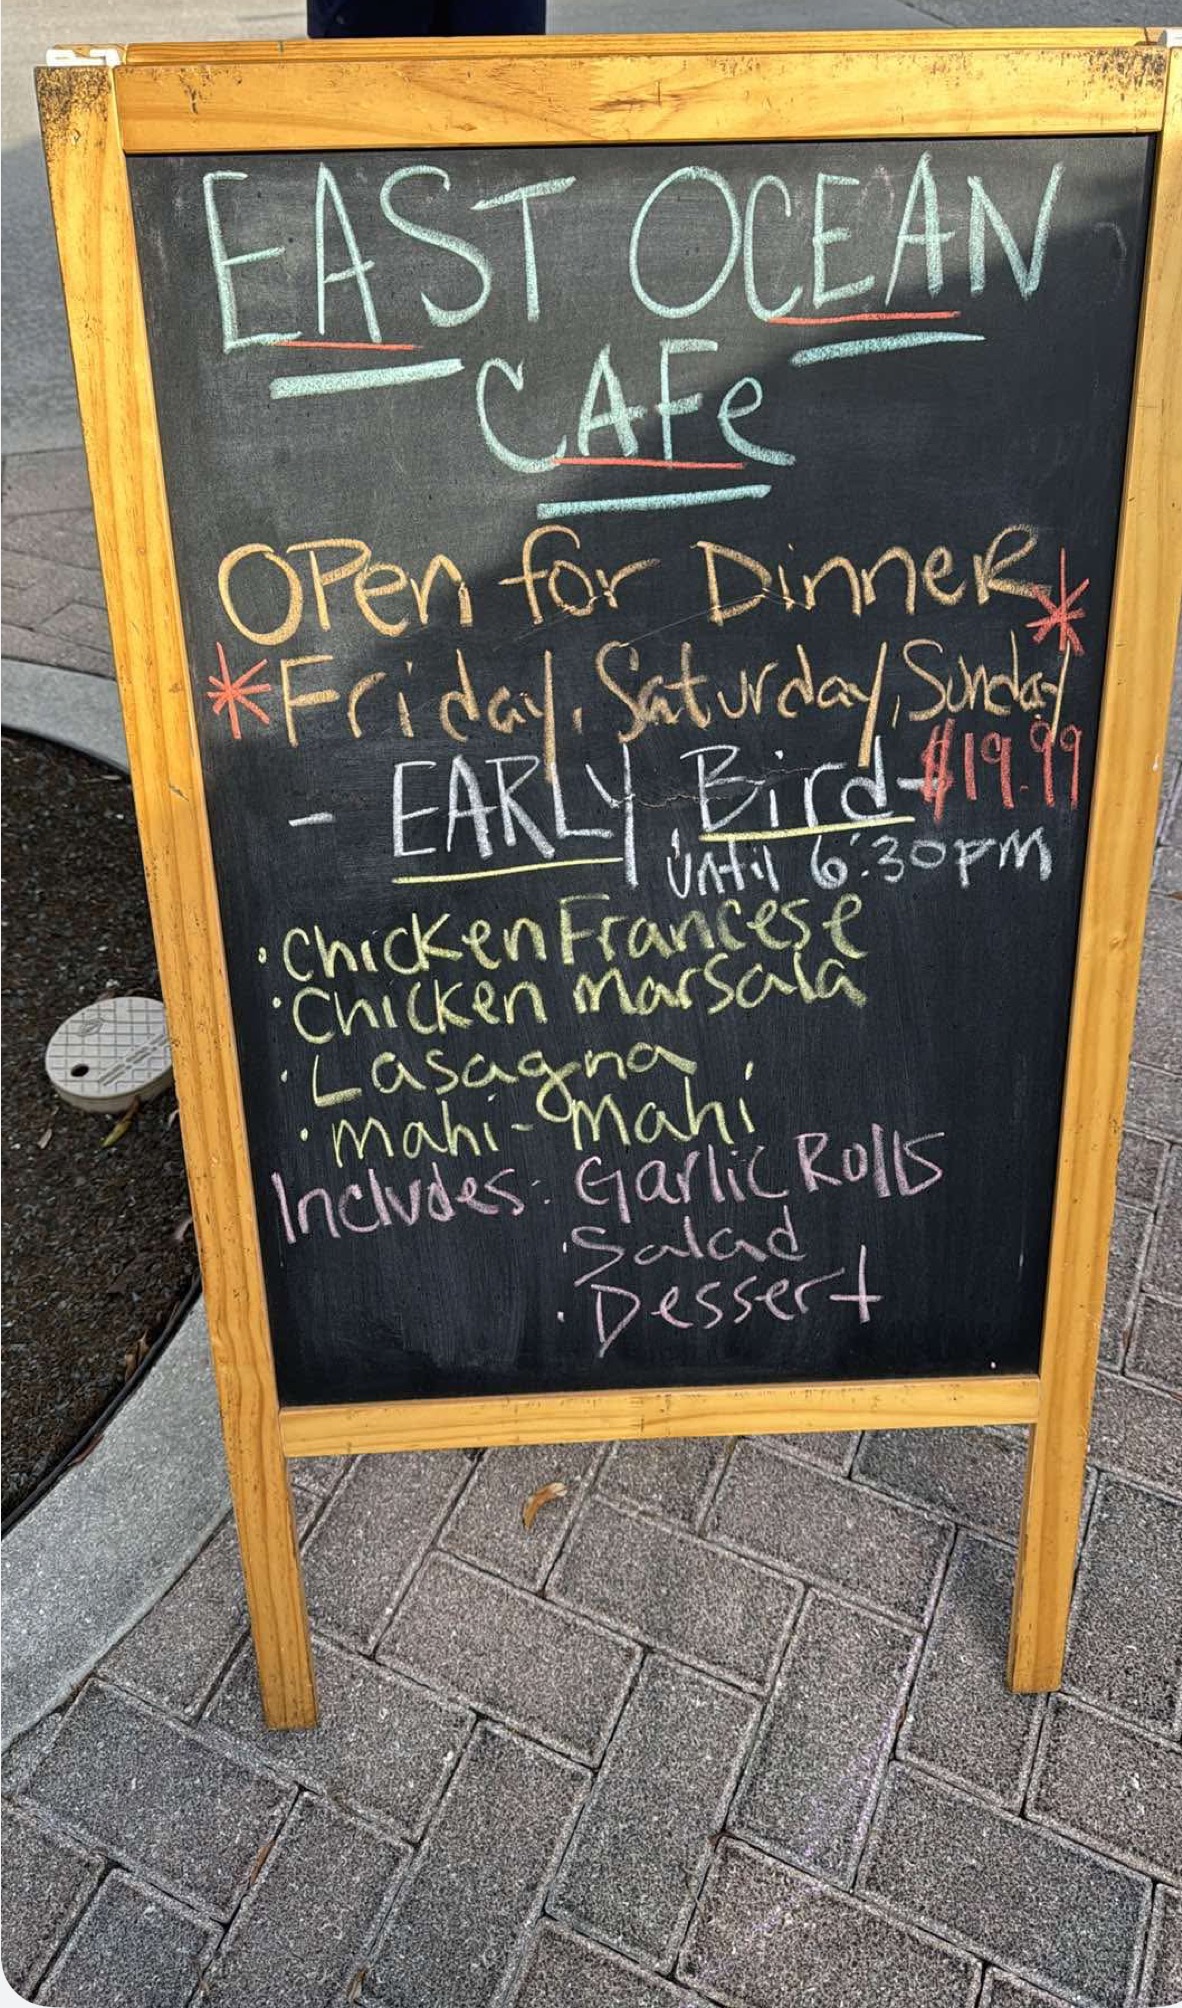 EAST OCEAN
CAFe
OPen for DinneR*
*Friday, Saturday, Sunday
- EARLY Bird - $19.99
until 6:30pm
· Chicken Francese
· Chicken marsala
· Lasagna
· mahi-mahi
Includes: Garlic Rolls
· Salad
· Dessert